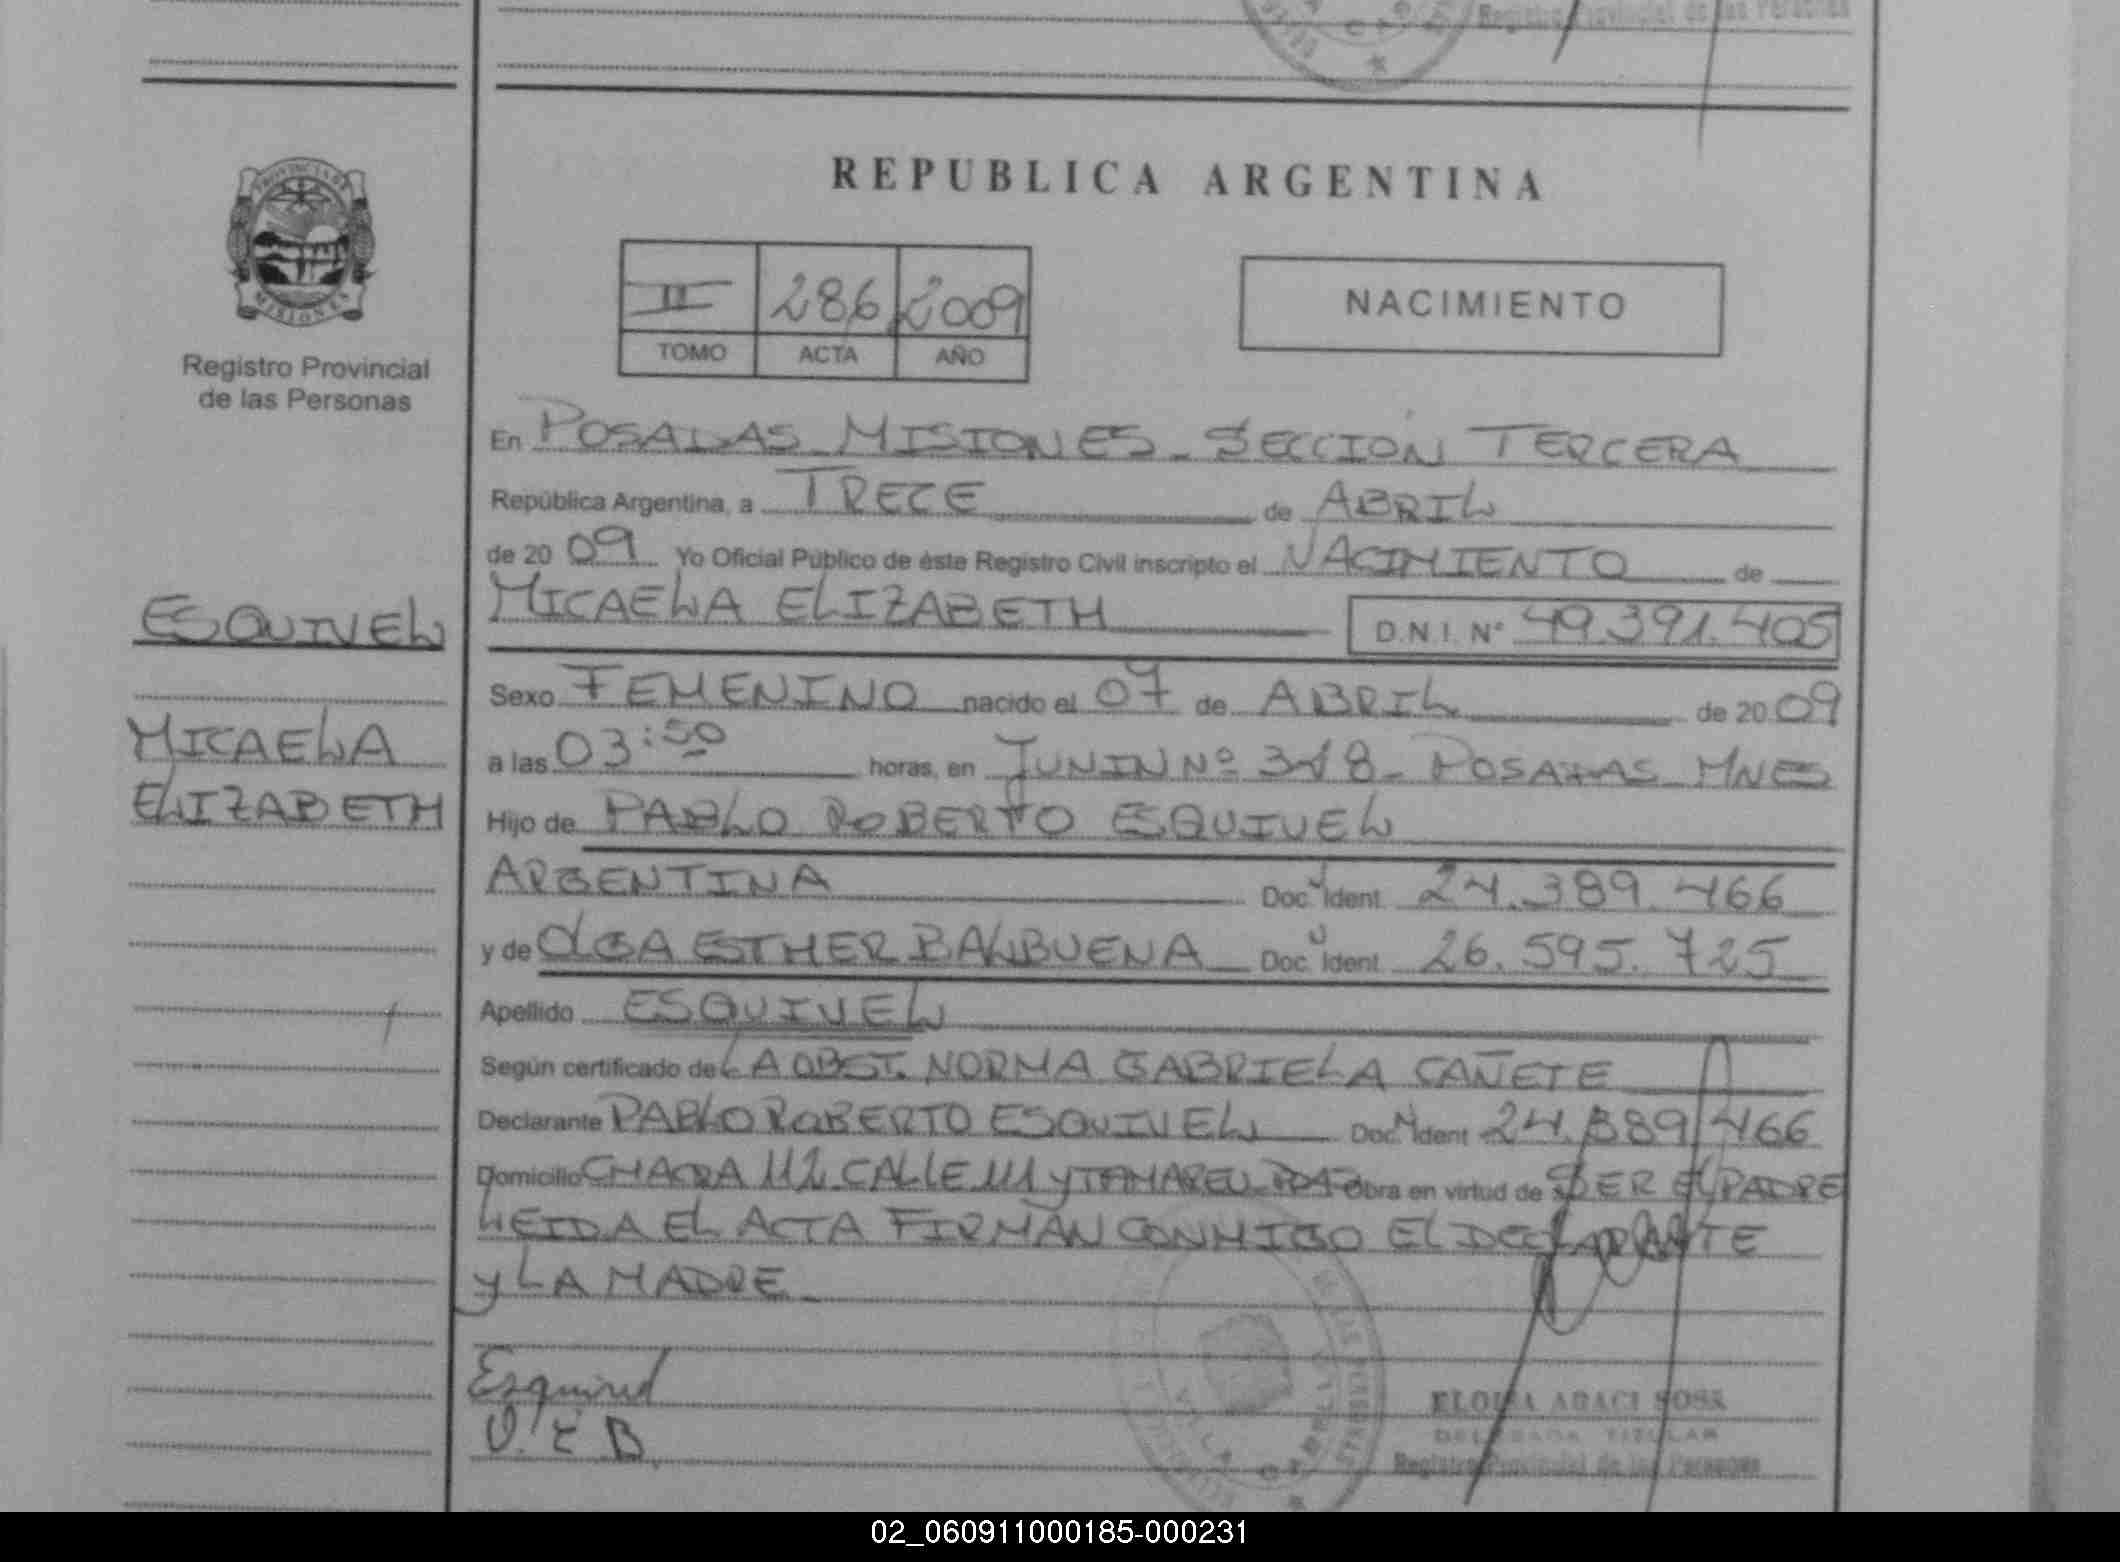 Registro Provincial de las Personas
REPUBLICA ARGENTINA
PROVINCIA DE
MISIONES
Registro Provincial
de las Personas
II 286 2009
TOMO ACTA AÑO
NACIMIENTO
En POSADAS - MISIONES - SECCION TERCERA
República Argentina, a TRECE de ABRIL
de 20 09 Yo Oficial Público de éste Registro Civil inscripto el NACIMIENTO de
MICAELA ELIZABETH D.N.I. N° 49.391.405
ESQUIVEL
MICAELA
ELIZABETH
Sexo FEMENINO nacido el 07 de ABRIL de 20 09
a las 03:50 horas, en JUNIN Nº 318 - POSADAS MNES
Hijo de PABLO ROBERTO ESQUIVEL
ARGENTINA Doc. Ident. 24.389.466
y de OLGA ESTHER BALBUENA Doc. Ident. 26.595.725
Apellido ESQUIVEL
Según certificado de LA OBST. NORMA GABRIELA CAÑETE
Declarante PABLO ROBERTO ESQUIVEL Doc. Ident 24.389.466
Domicilio CHACRA 112 CALLE 111 y obra en virtud de SER EL PADRE
LEIDA EL ACTA FIRMAN CONMIGO EL DECLARANTE
y LA MADRE
Esquivel
O. E B.
TITULAR
Registro Provincial de las Personas
02_060911000185-000231